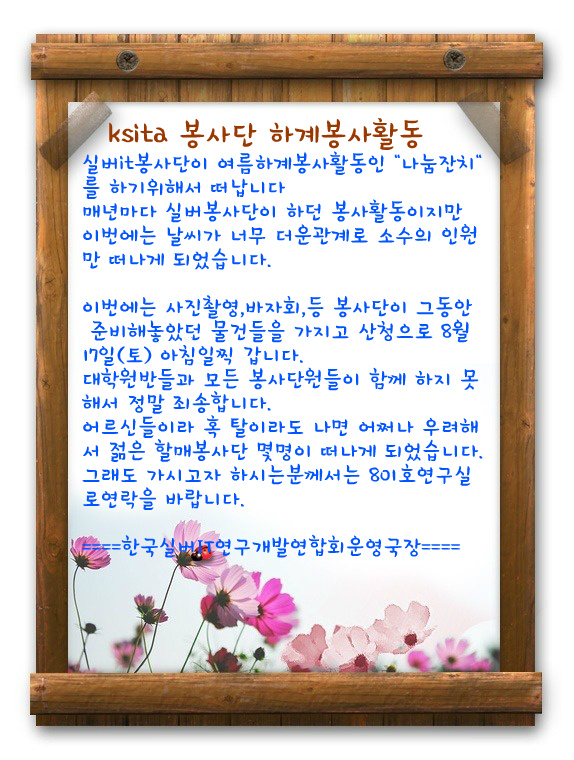 ksita 봉사단 하계봉사활동
실버it봉사단이 여름하계봉사활동인 "나눔잔치"
를 하기위해서 떠납니다
매년마다 실버봉사단이 하던 봉사활동이지만
이번에는 날씨가 너무 더운관계로 소수의 인원
만 떠나게 되었습니다.
이번에는 사진촬영,바자회,등 봉사단이 그동안
준비해놓았던 물건들을 가지고 산청으로 8월
17일(토) 아침일찍 갑니다.
대학원반들과 모든 봉사단원들이 함께 하지 못
해서 정말 죄송합니다.
어르신들이라 혹 탈이라도 나면 어쩌나 우려해
서 젊은 할매봉사단 몇명이 떠나게 되었습니다.
그래도 가시고자 하시는분께서는 801호연구실
로연락을 바랍니다.
====한국실버IT연구개발연합회운영국장====